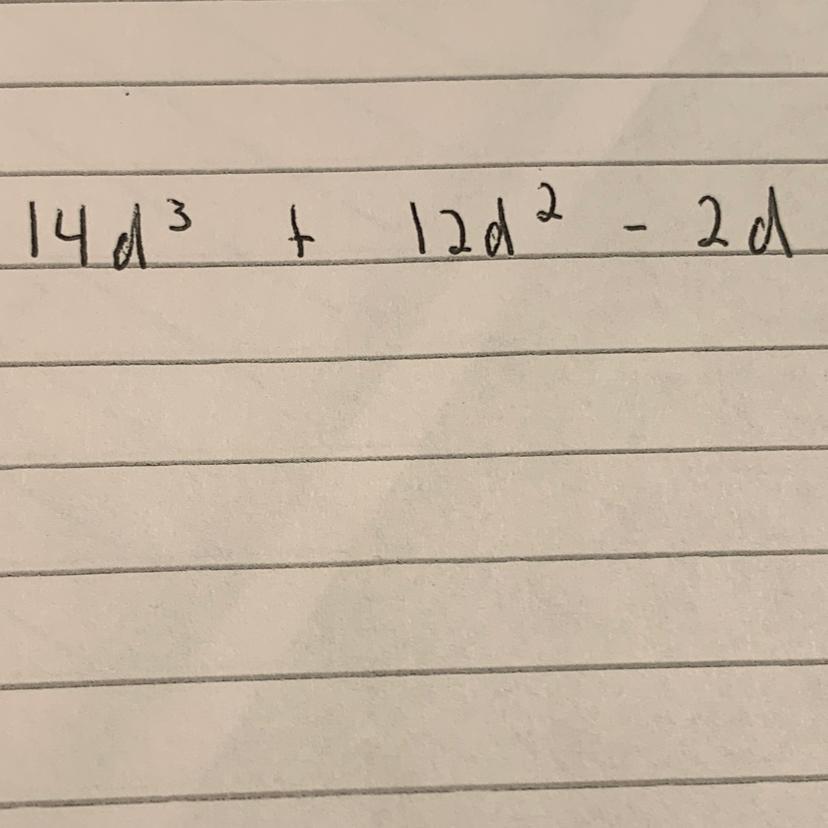 14d³ + 12d² - 2d